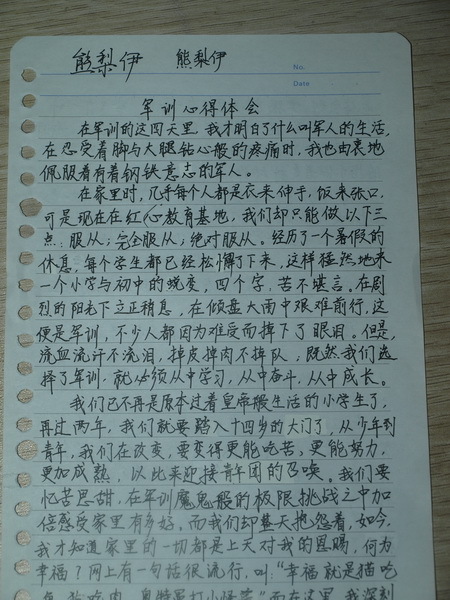 熊梨伊 熊梨伊
No.
Date
军训心得体会
在军训的这四天里，我才明白了什么叫军人的生活，
在忍受着脚与大腿钻心般的疼痛时，我也由衷地
佩服着有着钢铁意志的军人。
在家里时，几乎每个人都是衣来伸手，饭来张口，
可是现在在红心教育基地，我们却只能做以下三
点：服从；完全服从；绝对服从。经历了一个暑假的
休息，每个学生都已经松懈了下来，这样猛然地来
一个小学与初中的蜕变，四个字，苦不堪言。在剧
烈的阳光下立正稍息，在倾盘大雨中艰难前行，这
便是军训，不少人都因为难受而掉下了眼泪。但是，
流血流汗不流泪，掉皮掉肉不掉队，既然我们选
择了军训，就必须从中学习，从中奋斗，从中成长。
我们已不再是原本过着皇帝般生活的小学生了，
再过两年，我们就要踏入十四岁的大门了，从少年到
青年，我们在改变，要变得更能吃苦，更能努力，
更加成熟，以此来迎接青年团的召唤。我们要
忆苦思甜，在军训魔鬼般的极限挑战之中加
倍感受家里有多好，而我们却整天抱怨着，如今，
我才知道家里的一切都是上天对我的恩赐，何为
幸福？网上有一句话很流行，叫：“幸福就是猫吃
鱼，狗吃肉，奥特曼打小怪兽”而在这里，我深刻